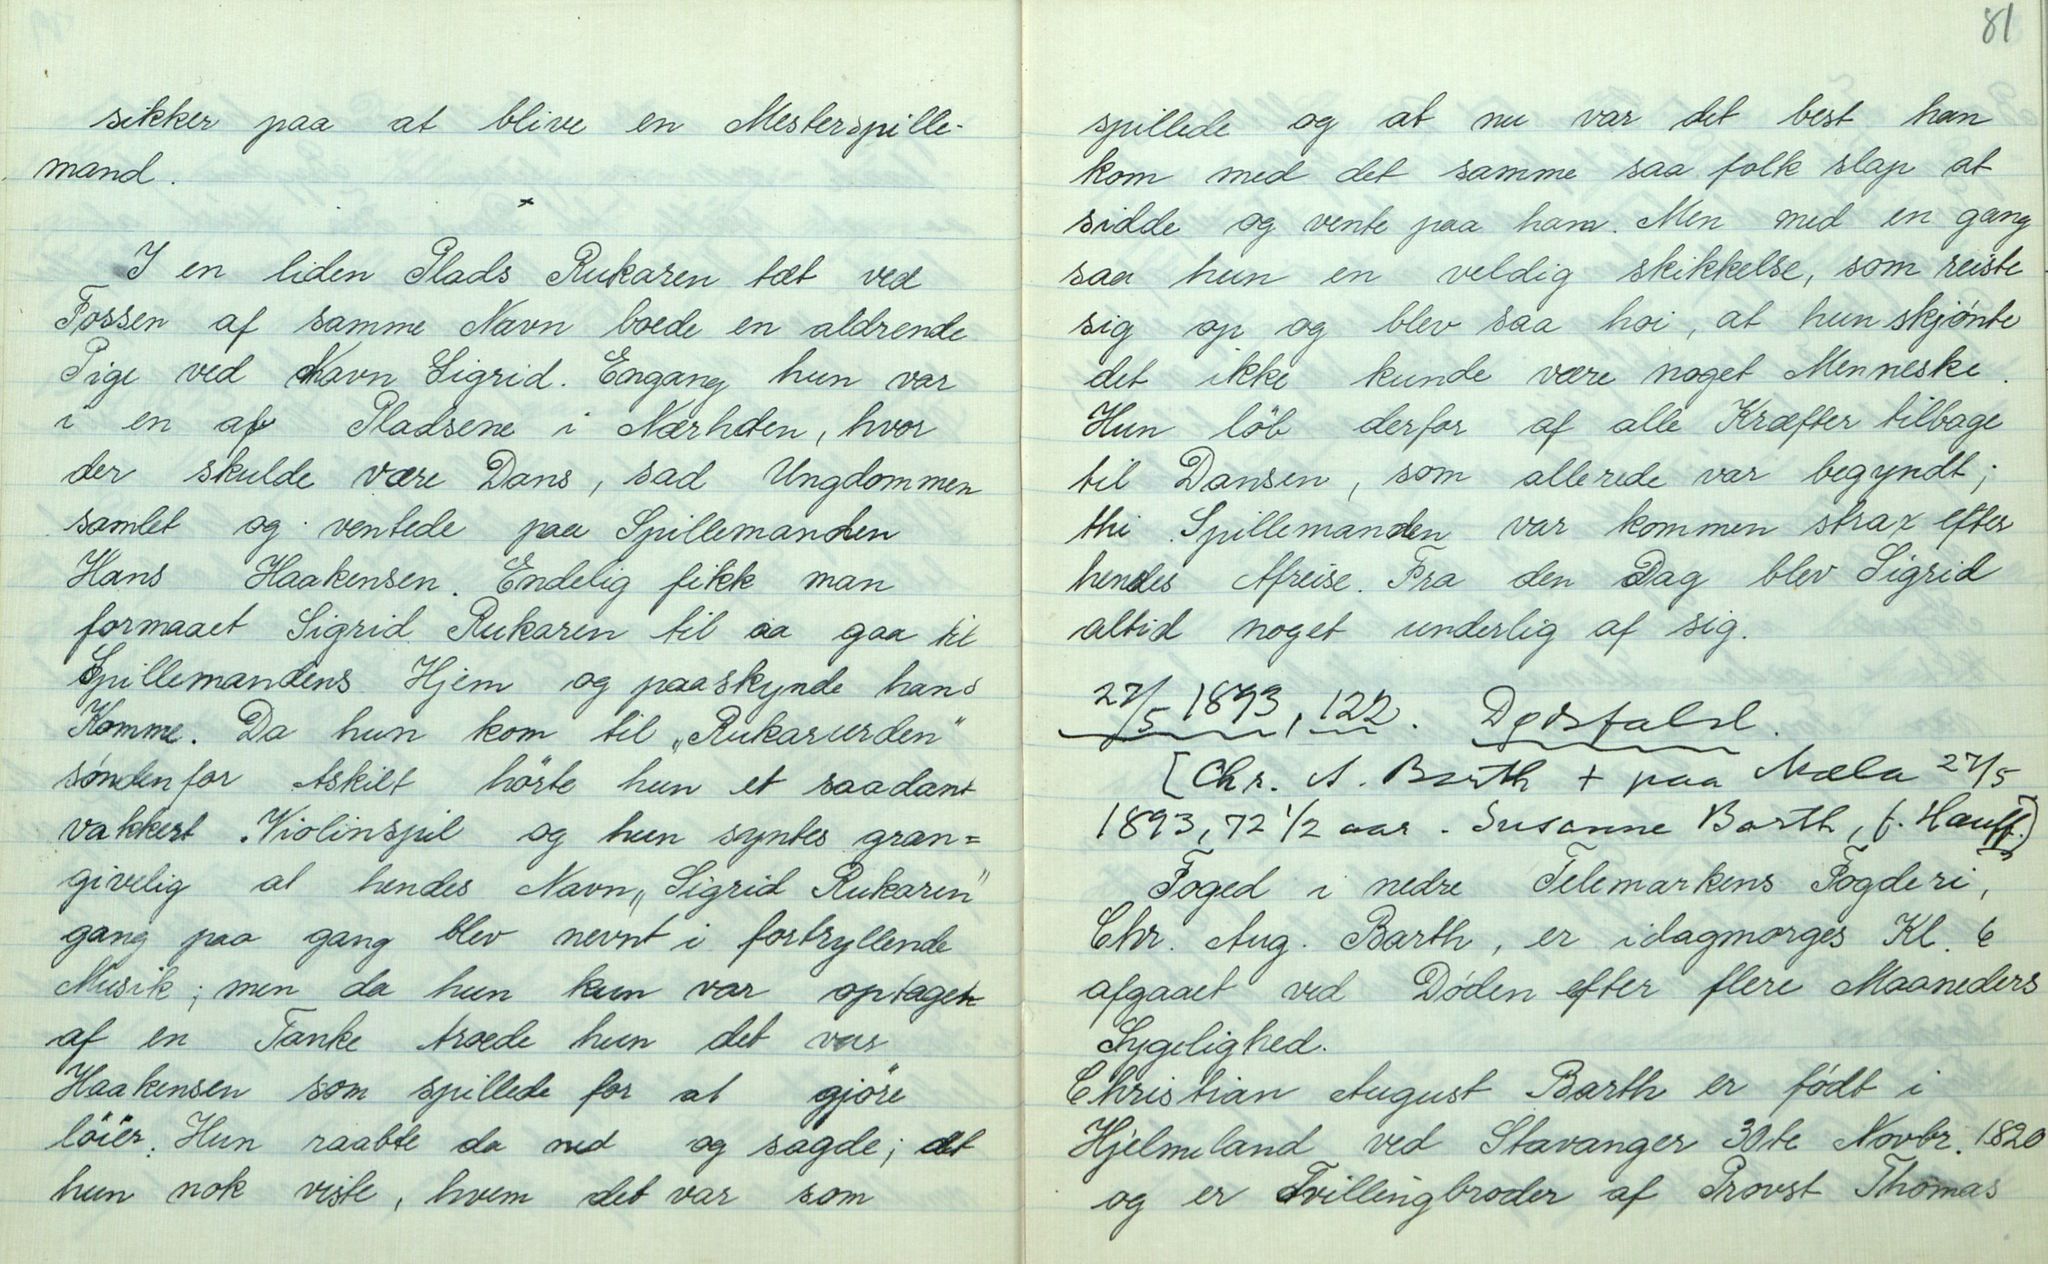 sikker paa at blive en Mesterspille-
mand.
I en liden Plads Rukaren tæt ved
Fossen af samme Navn boede en aldrende
Pige ved Navn Sigrid. Engang hun var
i en af Pladsene i Nærheden, hvor
der skulde være Dans, sad Ungdommen
samlet og ventede paa Spillemanden
Hans Haakensen. Endelig fikk man
formaaet Sigrid Rukaren til aa gaa til
Spillemandens Hjem og paaskynde hans
Komme. Da hun kom til „Rukarurden"
søndenfor Askilt hörte hun et saadant
vakkert Violinspil og hun syntes gran=
givelig at hendes Navn „Sigrid Rukaren"
gang paa gang blev nevnt i fortryllende
Musik; men da hun kun var optagen
af en Tanke troede hun det var
Haakensen som spillede for at gjöre
löier. Hun raabte da ned og sagde; det
hun nok viste, hvem det var som
81
spillede og at nu var det best han
kom med det samme saa folk slap at
sidde og vente paa ham. Men med en gang
saa hun en veldig skikkelse, som reiste
sig op og blev saa hoi, at hun skjønte
det ikke kunde være noget Menneske.
Hun löb derfor af alle Kræfter tilbage
til Dansen, som allerede var begyndt;
thi Spillemanden var kommen strax efter
hendes Afreise. Fra den Dag blev Sigrid
altid noget underlig af sig.
27/5 1893, 122. Dødsfald.
[Chr. A. Barth + paa Mæla 27/5
1893, 72 1/2 aar. Susanne Barth, f. Hauff.)
Foged i nedre Telemarkens Fogderi,
Chr. Aug. Barth, er idagmorges Kl. 6
afgaaet ved Døden efter flere Maaneders
Sygelighed.
Christian August Barth er født i
Hjelmeland ved Stavanger 30te Novbr. 1820
og er Tvillingbroder af Provst Thomas